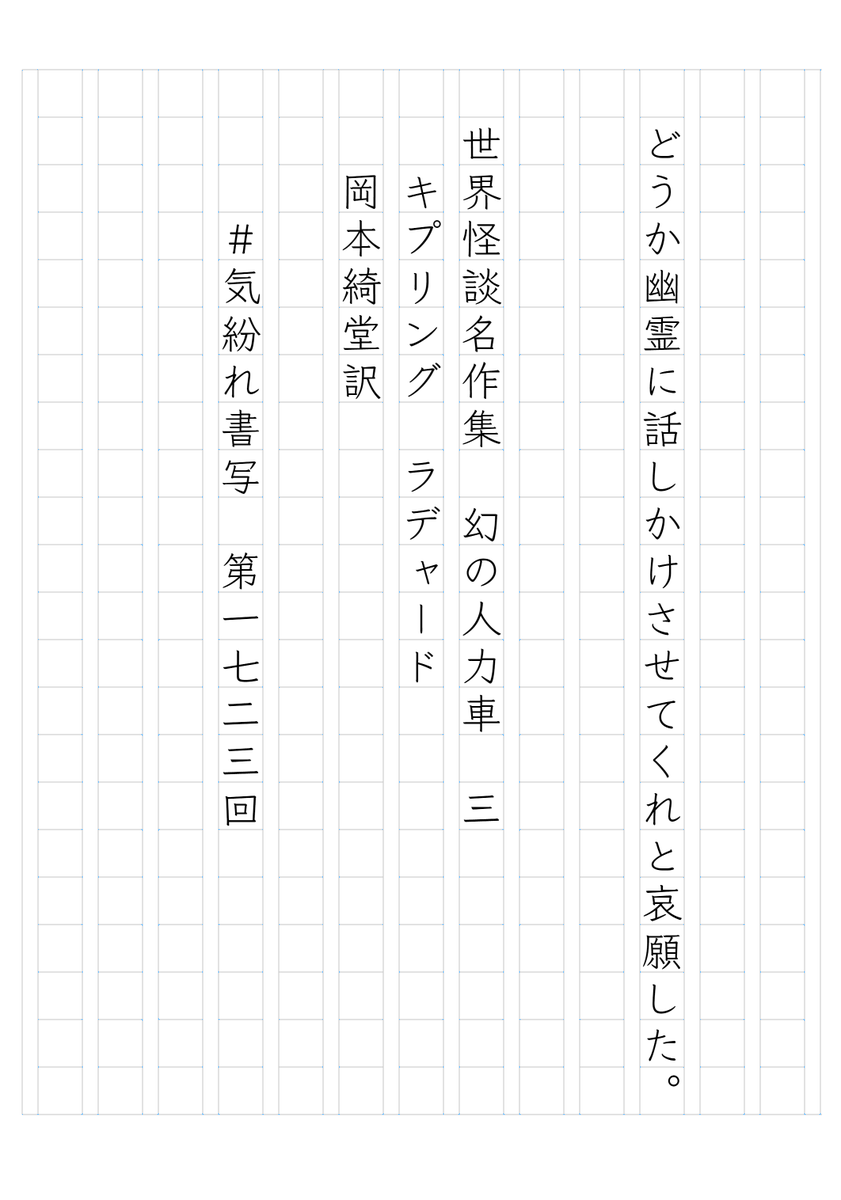 どうか幽霊に話しかけさせてくれと哀願した。
世界怪談名作集　幻の人力車　三
キプリング　ラデャード
岡本綺堂訳
＃気紛れ書写　第一七二三回